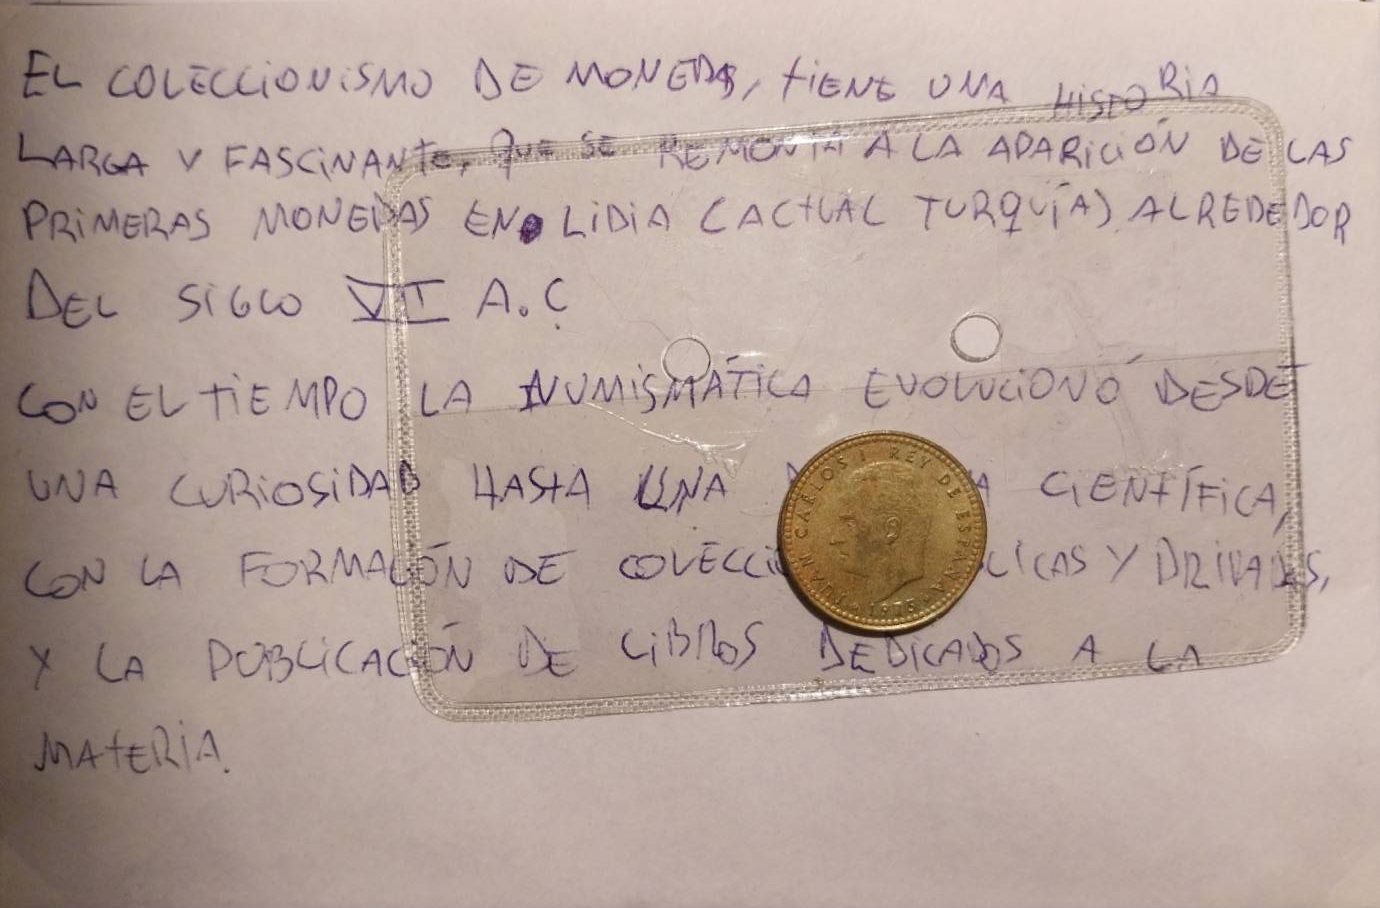 EL COLECCIONISMO DE MONEDAS, TIENE UNA HISTORIA
LARGA Y FASCINANTE, QUE SE REMONTA A LA APARICIÓN DE LAS
PRIMERAS MONEDAS EN LIDIA (ACTUAL TURQUÍA) ALREDEDOR
DEL SIGLO VII A.C
CON EL TIEMPO LA NUMISMÁTICA EVOLUCIONÓ DESDE
UNA CURIOSIDAD HASTA UNA CIENTÍFICA,
CON LA FORMACIÓN DE Y PRIVADAS,
Y LA PUBLICACIÓN DE LIBROS DEDICADOS A LA
MATERIA.
JUAN CARLOS I REY DE ESPAÑA
1975